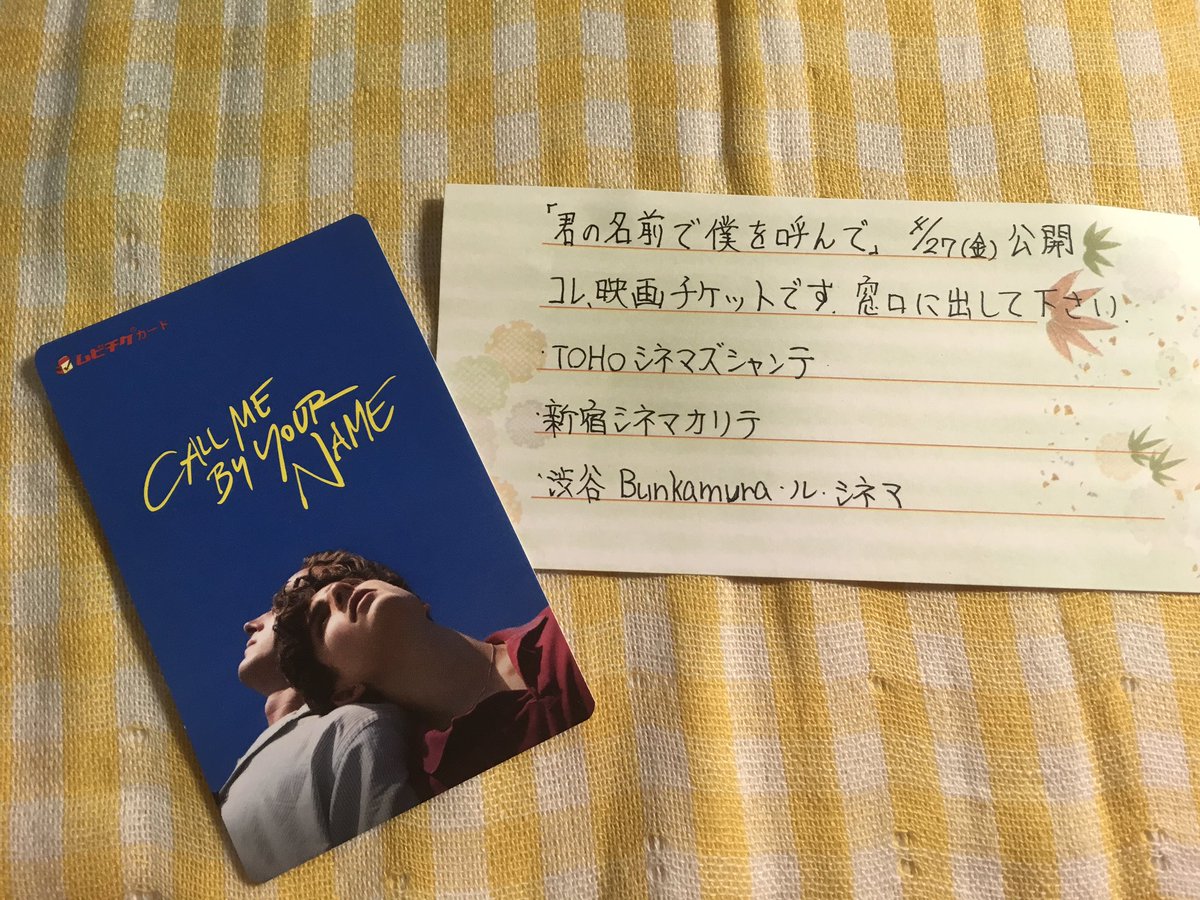 ムビチケカード
CALL ME
BY YOUR
NAME
「君の名前で僕を呼んで」 4/27(金) 公開
コレ、映画チケットです。窓口に出して下さい。
・TOHOシネマズシャンテ
・新宿シネマカリテ
・渋谷 Bunkamura・ル・シネマ